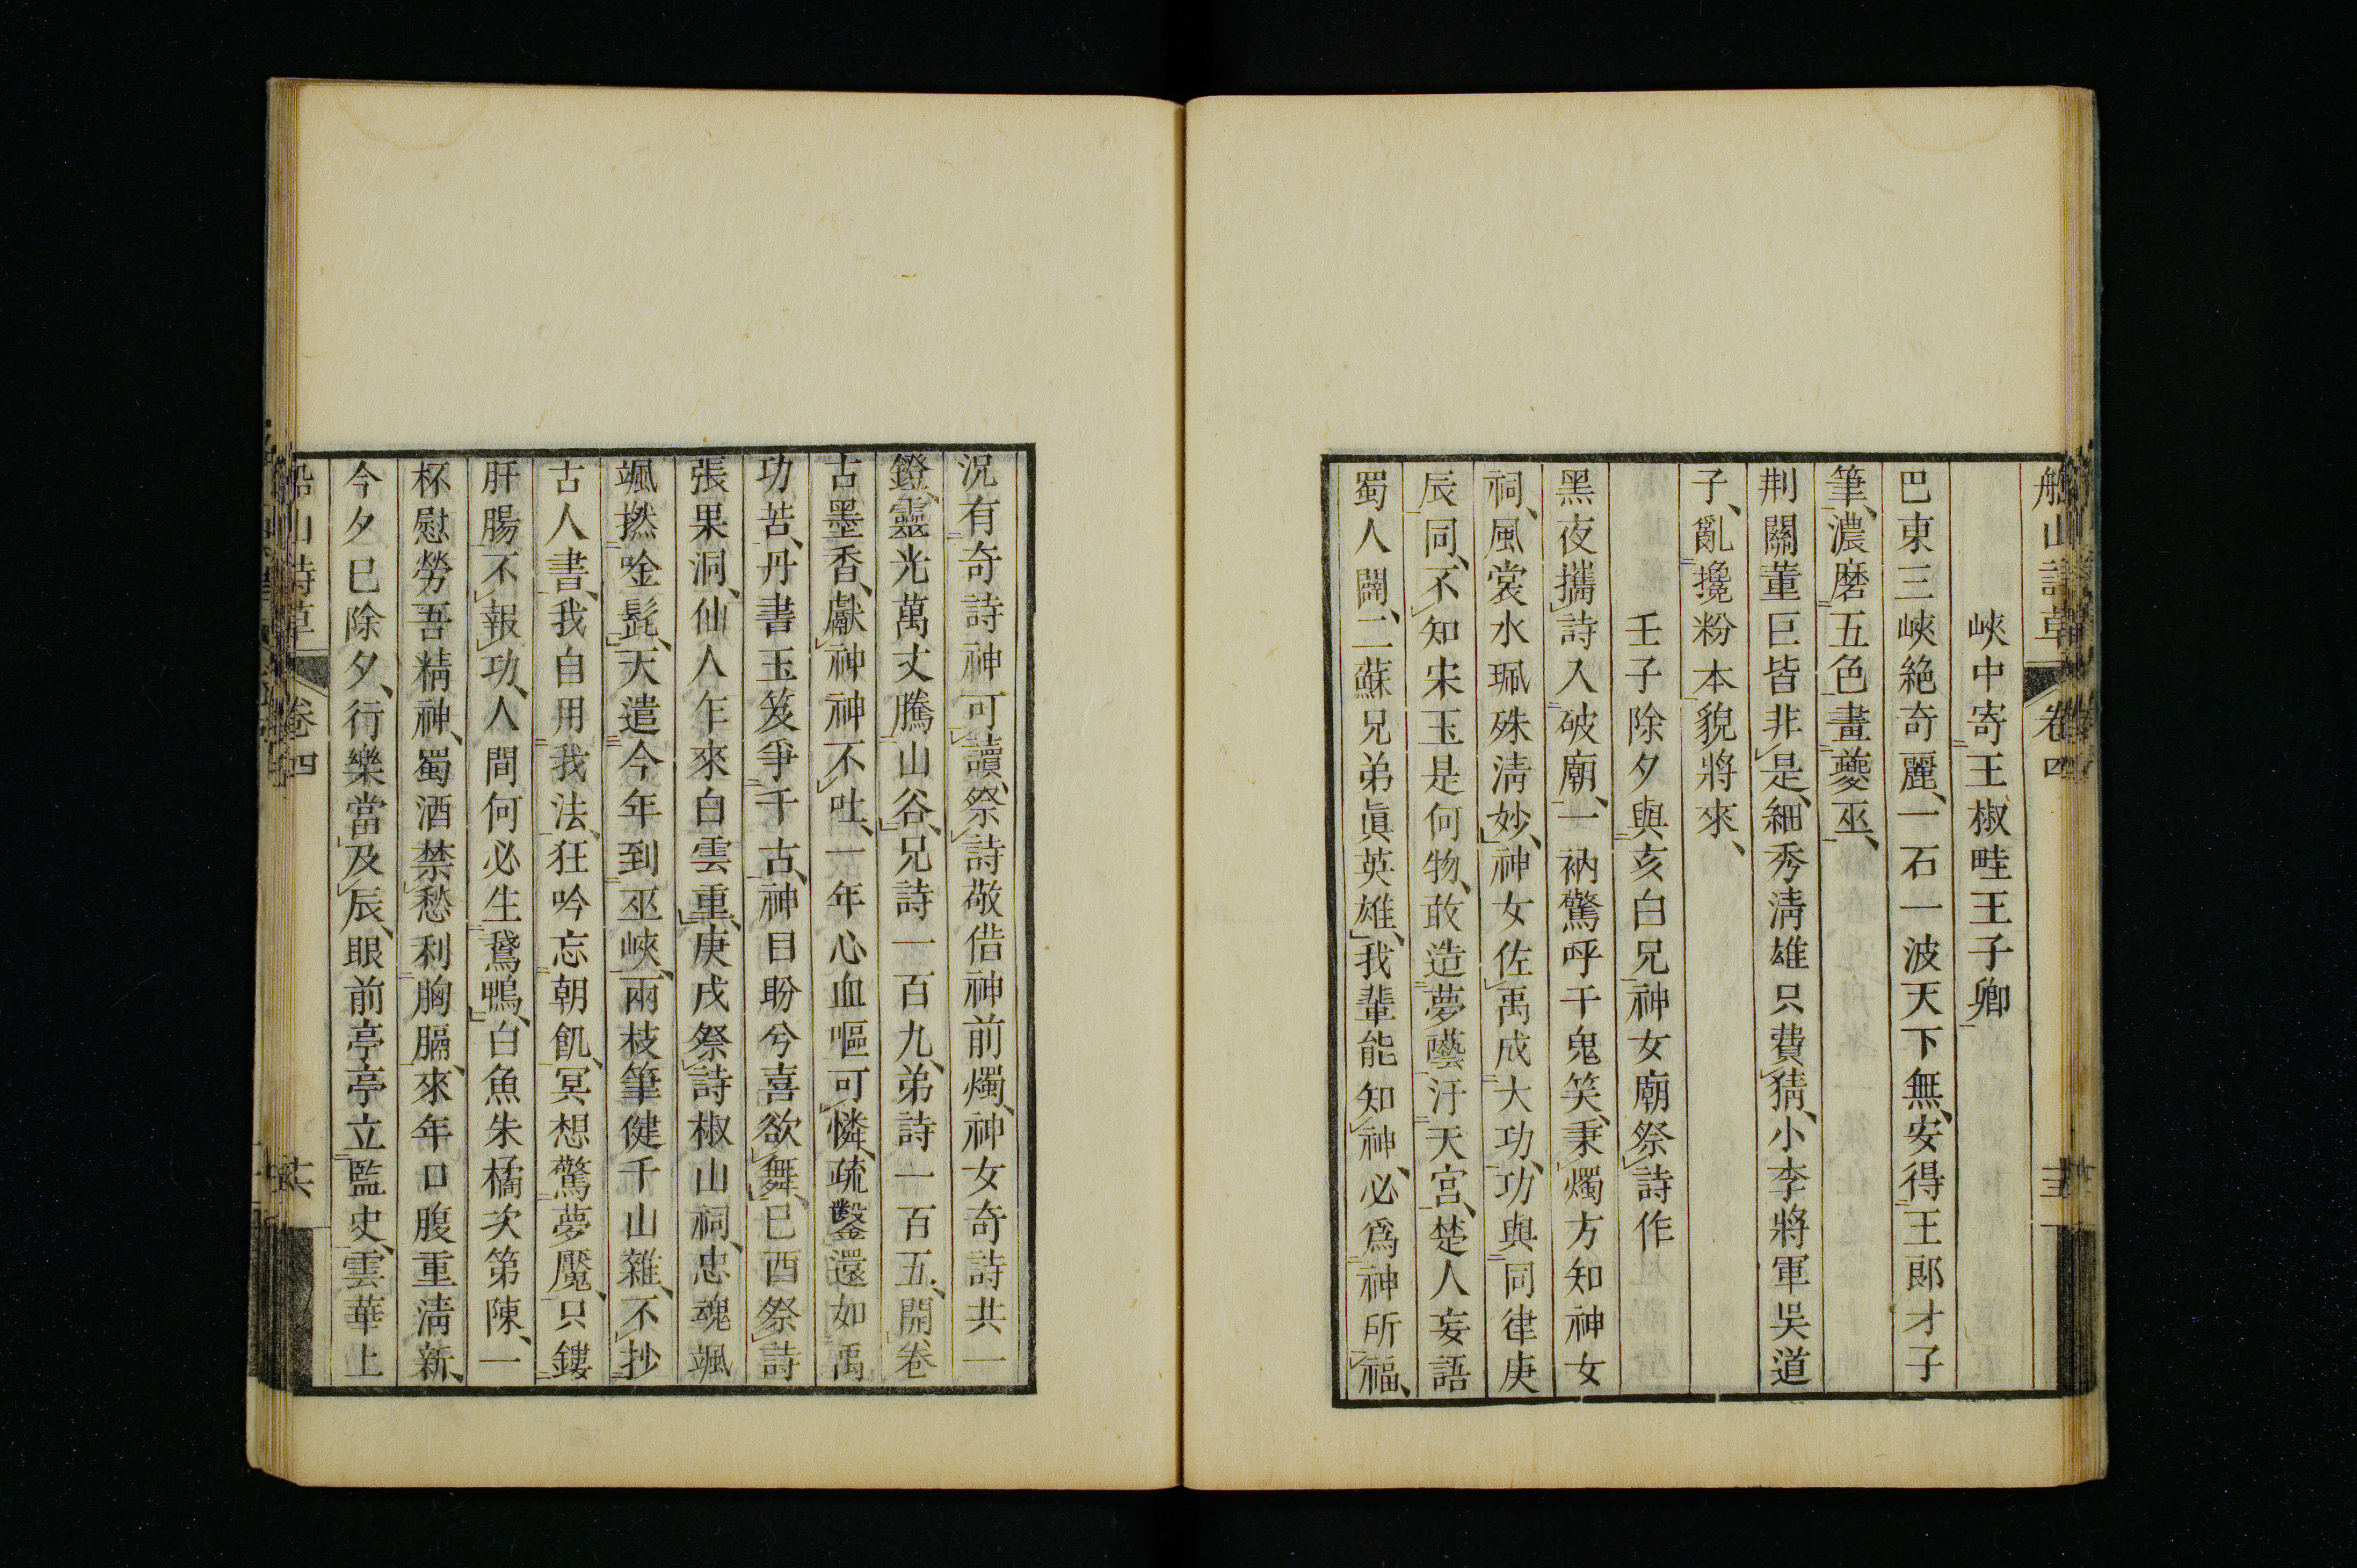 船山詩草 卷四
峽中寄王椒畦王子卿
巴東三峽絶奇麗、一石一波天下無、安得王郎才子
筆、濃磨五色畫夔巫、
荆關董巨皆非是、細秀淸雄只費猜、小李將軍吳道
子、亂攙粉本貌將來、
壬子除夕與亥白兄神女廟祭詩作
黑夜攜詩入破廟、一衲驚呼千鬼笑、秉燭方知神女
祠、風裳水珮殊淸妙、神女佐禹成大功、功與同律庚
辰同、不知宋玉是何物、敢造夢囈汙天宮、楚人妄語
蜀人闢、二蘇兄弟眞英雄、我輩能知神、必爲神所福、
況有奇詩神可讀、祭詩敬借神前燭、神女奇詩共一
鐙、靈光萬丈騰山谷、兄詩一百九、弟詩一百五、開卷
古墨香、獻神神不吐、一年心血嘔可憐、疏鑿還如禹
功苦、丹書玉笈爭千古、神目盼兮喜欲舞、已酉祭詩
張果洞、仙人乍來白雲重、庚戌祭詩椒山祠、忠魂颯
颯撚唫髭、天遣今年到巫峽、兩枝筆健千山雜、不抄
古人書、我自用我法、狂吟忘朝飢、冥想驚夢魘、只鏤
肝腸不報功、人間何必生鵞鴨、白魚朱橘次第陳、一
杯慰勞吾精神、蜀酒禁愁利胸膈、來年口腹重淸新、
今夕巳除夕、行樂當及辰、眼前亭亭立監史、雲華上
船山詩草 卷四